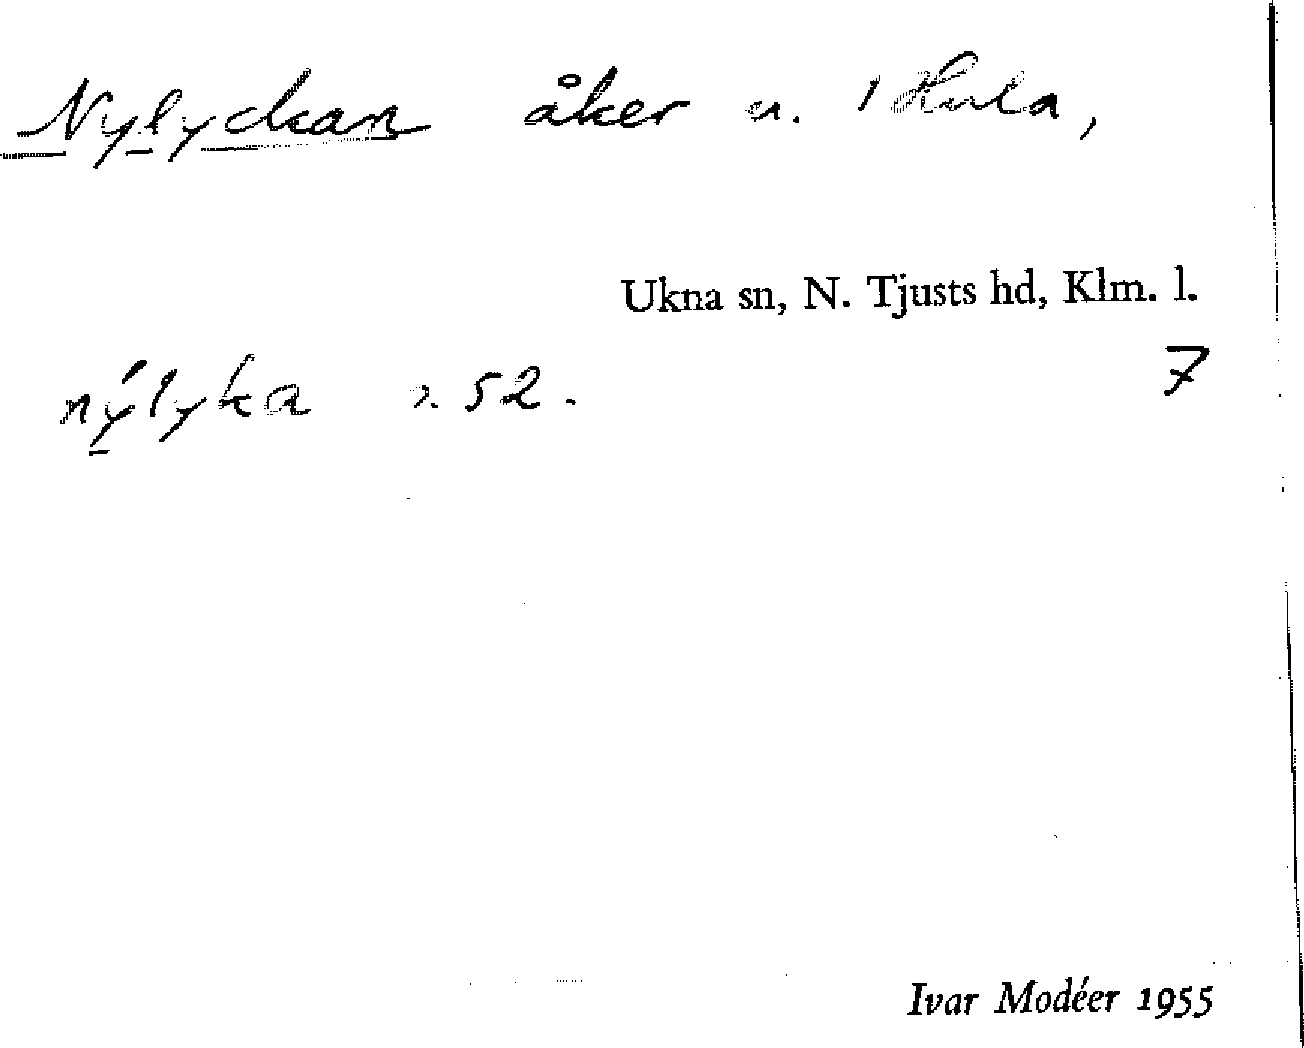 Nylyckan åker u. 1 Hula,
Ukna sn, N. Tjusts hd, Klm. l.
7
nýlyka 52.
Ivar Modéer 1955